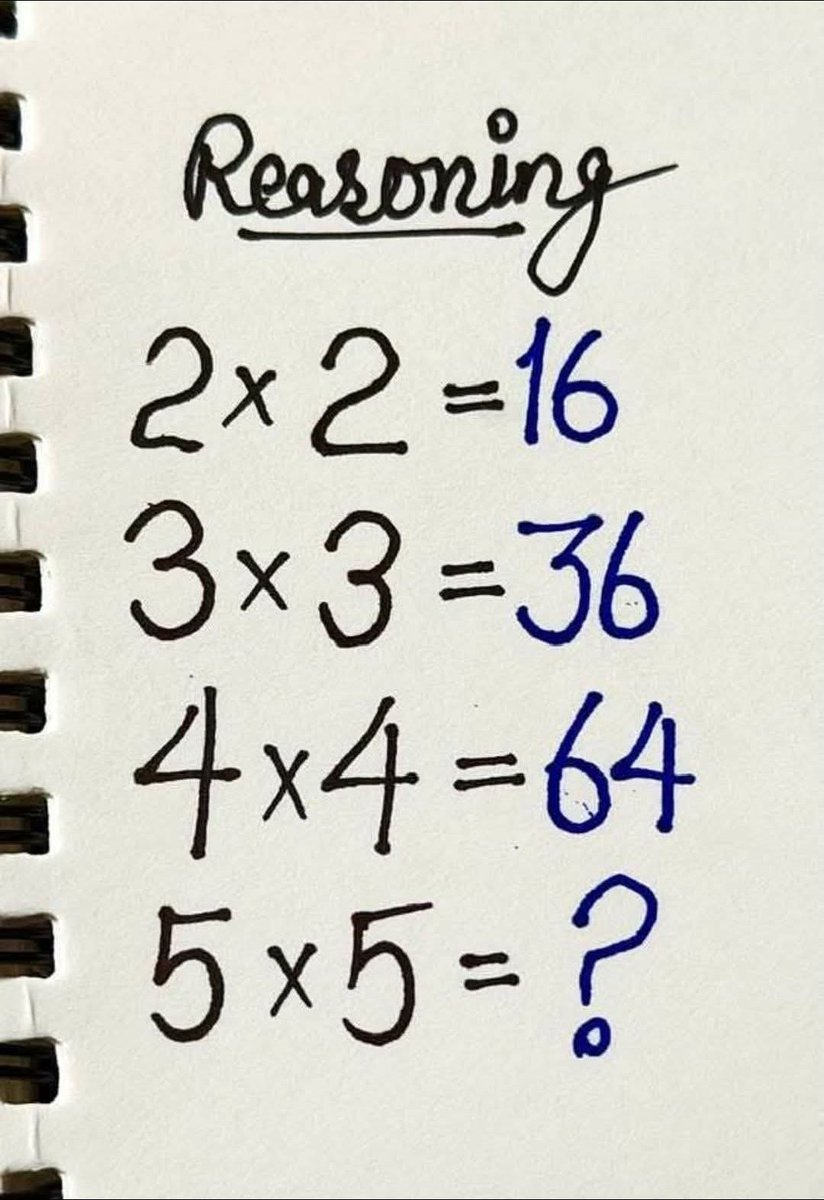 Reasoning
2 × 2 = 16
3 × 3 = 36
4 × 4 = 64
5 × 5 = ?